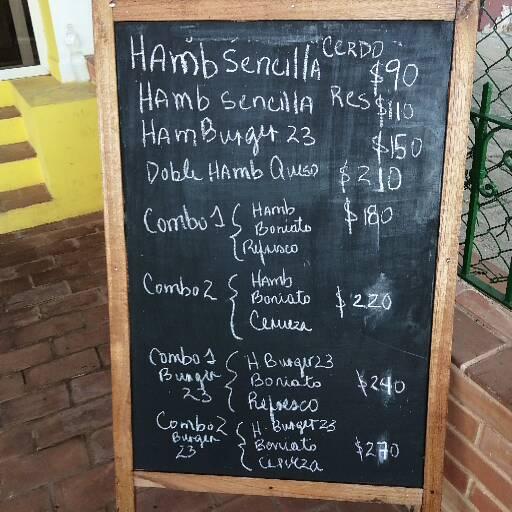 HAmb Sencilla CERDO $90
HAmb Sencilla Res $110
HamBurger 23 $150
Doble Hamb Queso $210
Combo 1 { Hamb $180
Boniato
Refresco
Combo 2 { Hamb
Boniato $220
Cerveza
Combo 1 { H Burger 23
Burger Boniato $240
23 Refresco
Combo 2 { H Burger 23
Burger Boniato $270
23 Cerveza